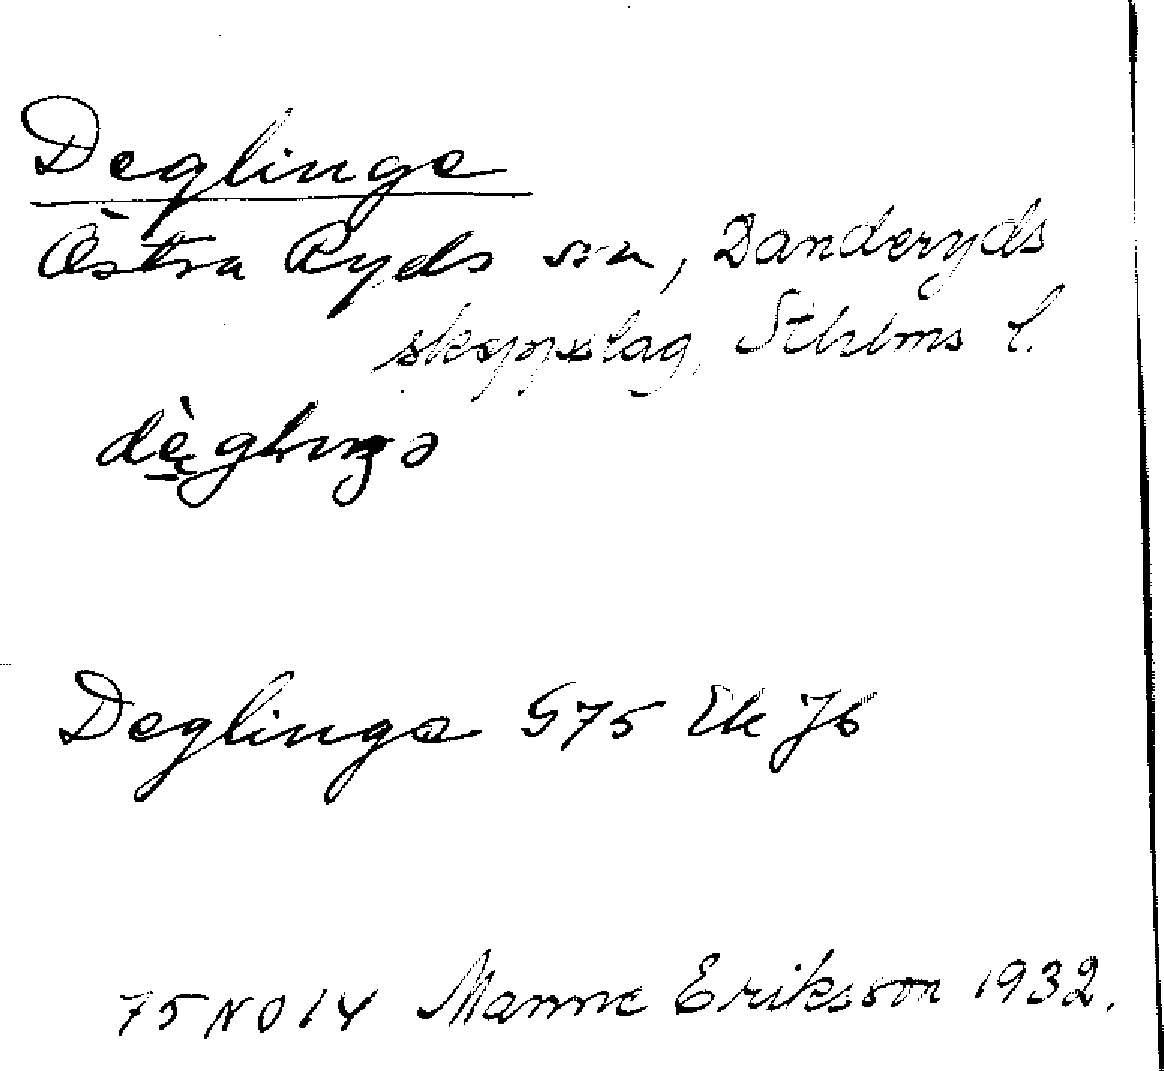 Deglinge
Östra Ryds sn, Danderyds
skeppslag, Sthlms l.
dèglıŋə
Deglinge G75 Ek J6
75 NO 14 Manne Eriksson 1932.